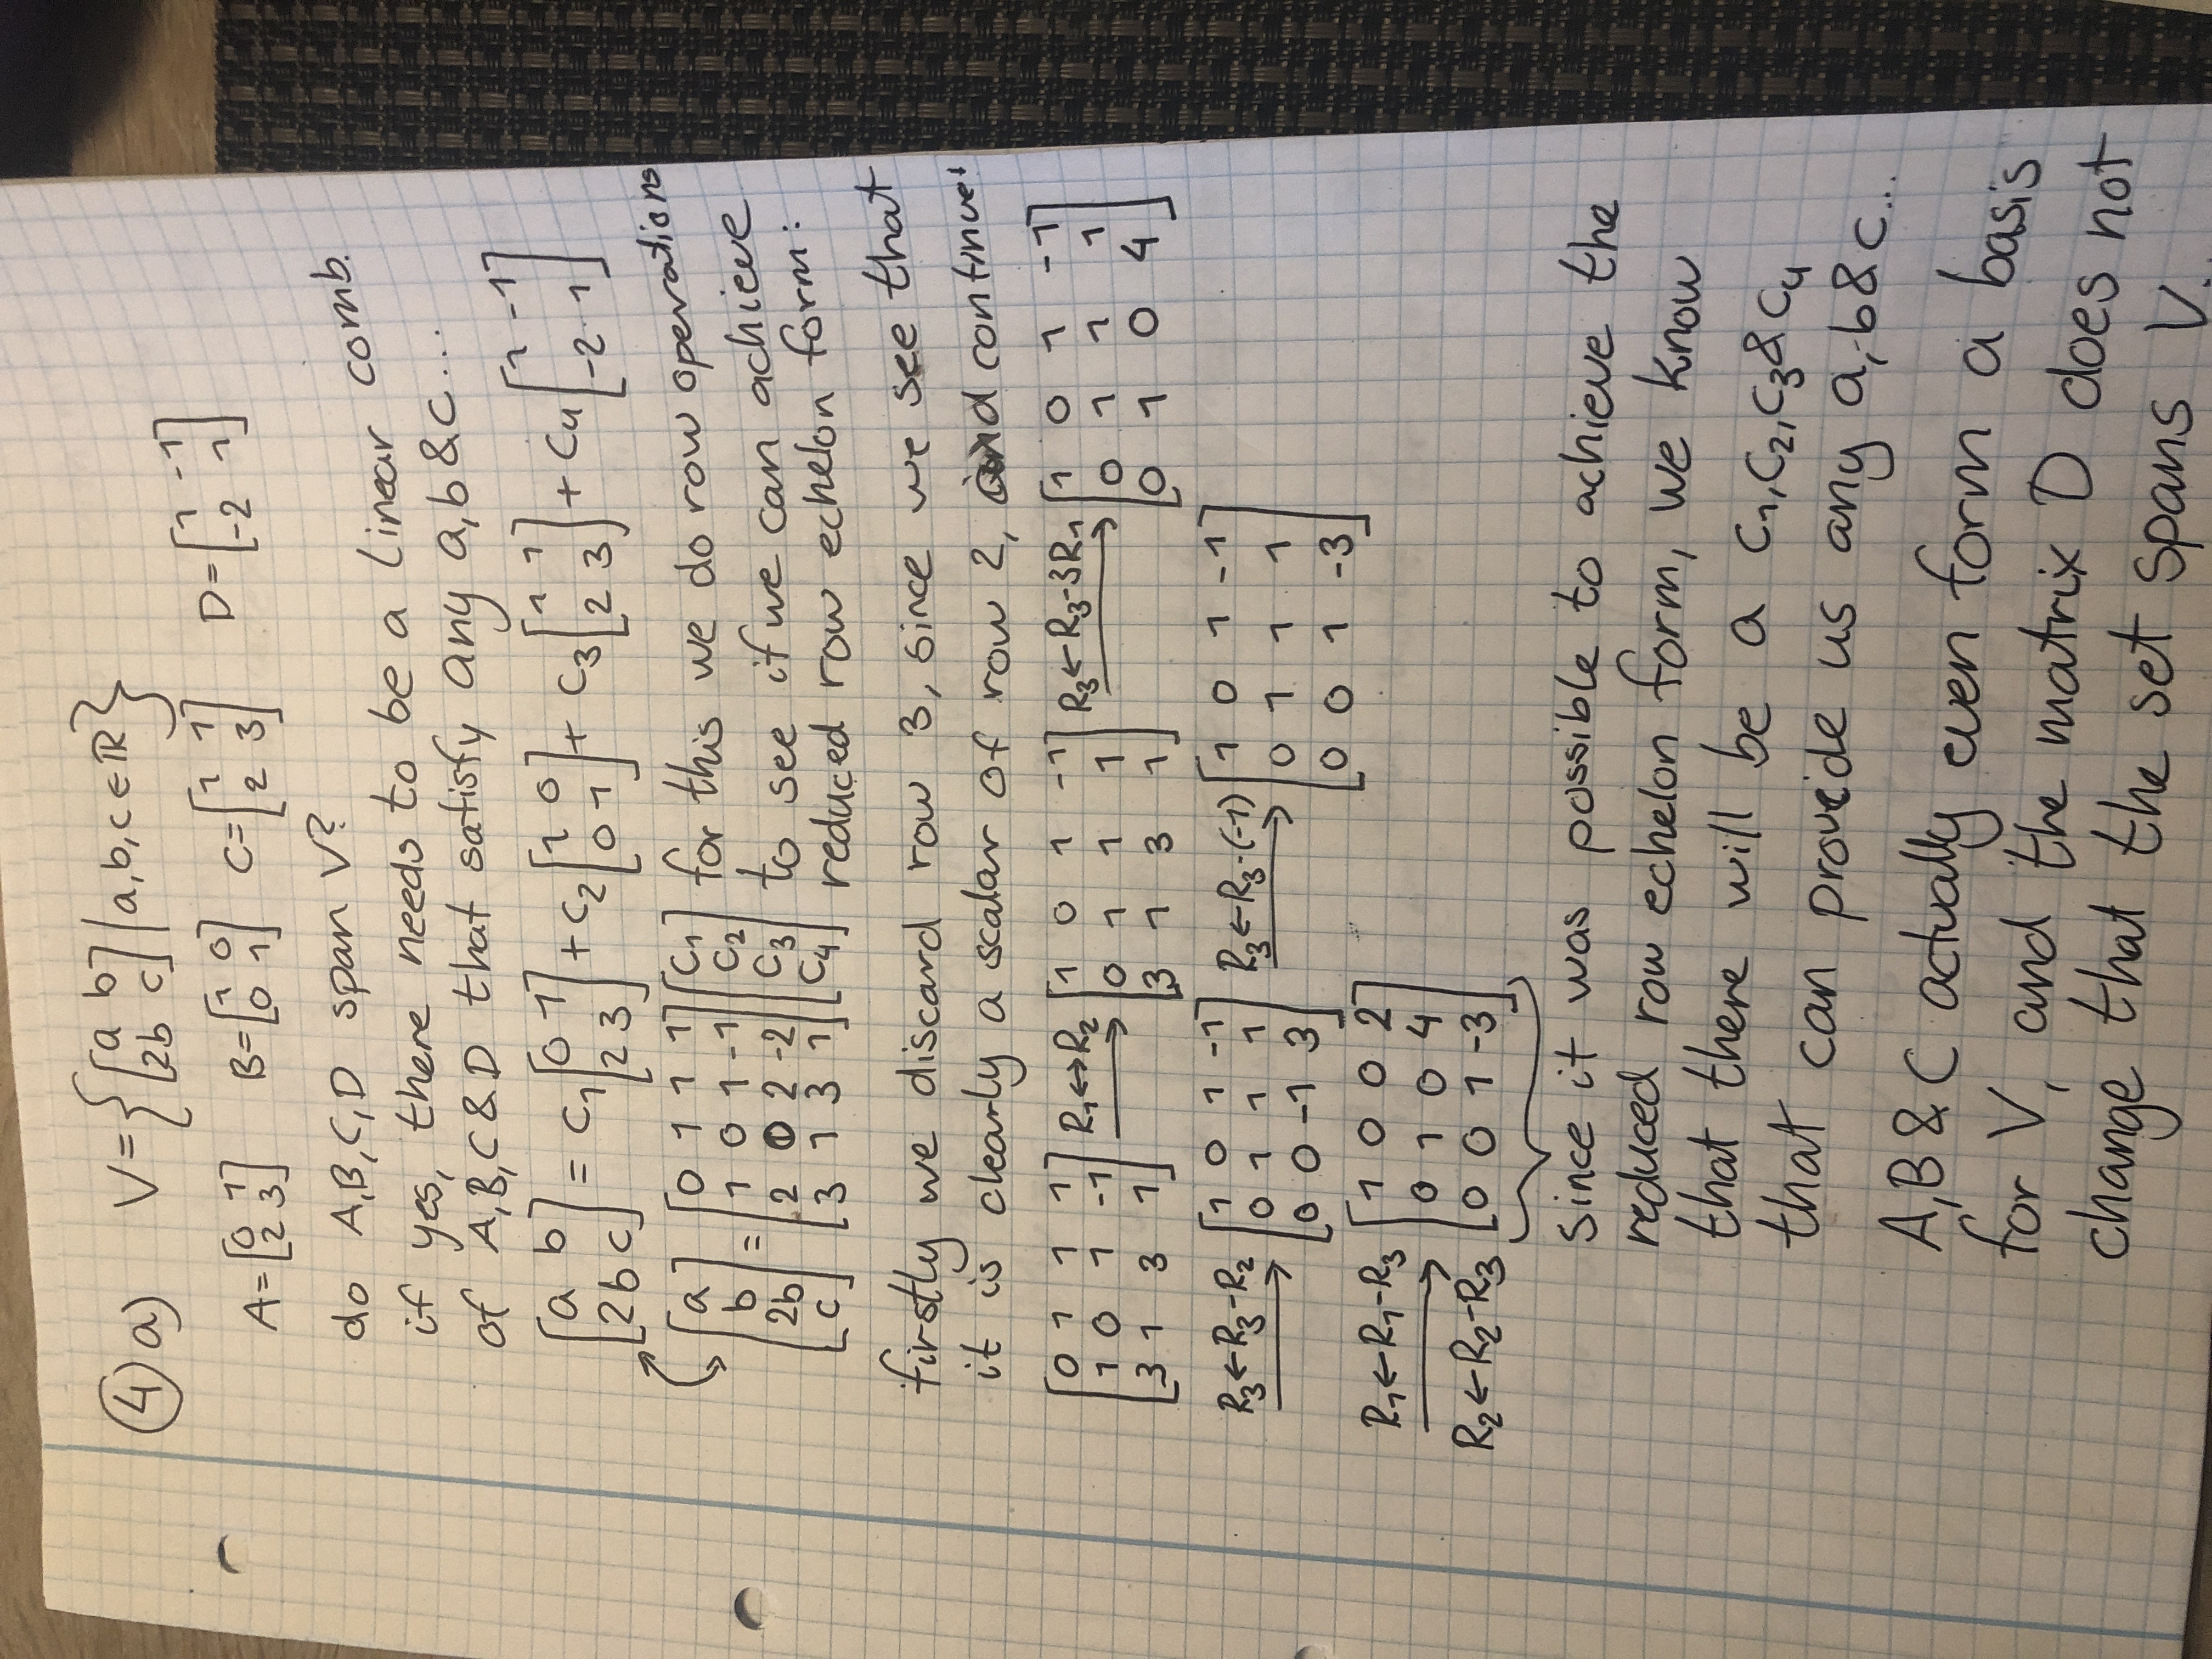 ④ a) V = { [a b; 2b c] | a,b,c ∈ ℝ }
A = [0 1; 2 3] B = [1 0; 0 1] C = [1 1; 2 3] D = [1 -1; -2 1]
do A,B,C,D span V?
if yes, there needs to be a linear comb.
of A,B,C & D that satisfy any a,b & c...
[a b; 2b c] = C₁[0 1; 2 3] + C₂[1 0; 0 1] + C₃[1 1; 2 3] + C₄[1 -1; -2 1]
[a; b; 2b; c] = [0 1 1 1; 1 0 1 -1; 2 0 2 -2; 3 1 3 1] [C₁; C₂; C₃; C₄] for this we do row operations
to see if we can achieve
reduced row echelon form:
firstly we discard row 3, since we see that
it is clearly a scalar of row 2, and continue:
[0 1 1 1; 1 0 1 -1; 3 1 3 1] R₁↔R₂ → [1 0 1 -1; 0 1 1 1; 3 1 3 1] R₃←R₃-3R₁ → [1 0 1 -1; 0 1 1 1; 0 1 0 4]
R₃←R₃-R₂ → [1 0 1 -1; 0 1 1 1; 0 0 -1 3] R₃←R₃·(-1) → [1 0 1 -1; 0 1 1 1; 0 0 1 -3]
R₁←R₁-R₃ R₂←R₂-R₃ → [1 0 0 2; 0 1 0 4; 0 0 1 -3]
since it was possible to achieve the
reduced row echelon form, we know
that there will be a C₁,C₂,C₃ & C₄
that can provide us any a, b & c...
A,B & C actually even form a basis
for V, and the matrix D does not
change that the set spans V..